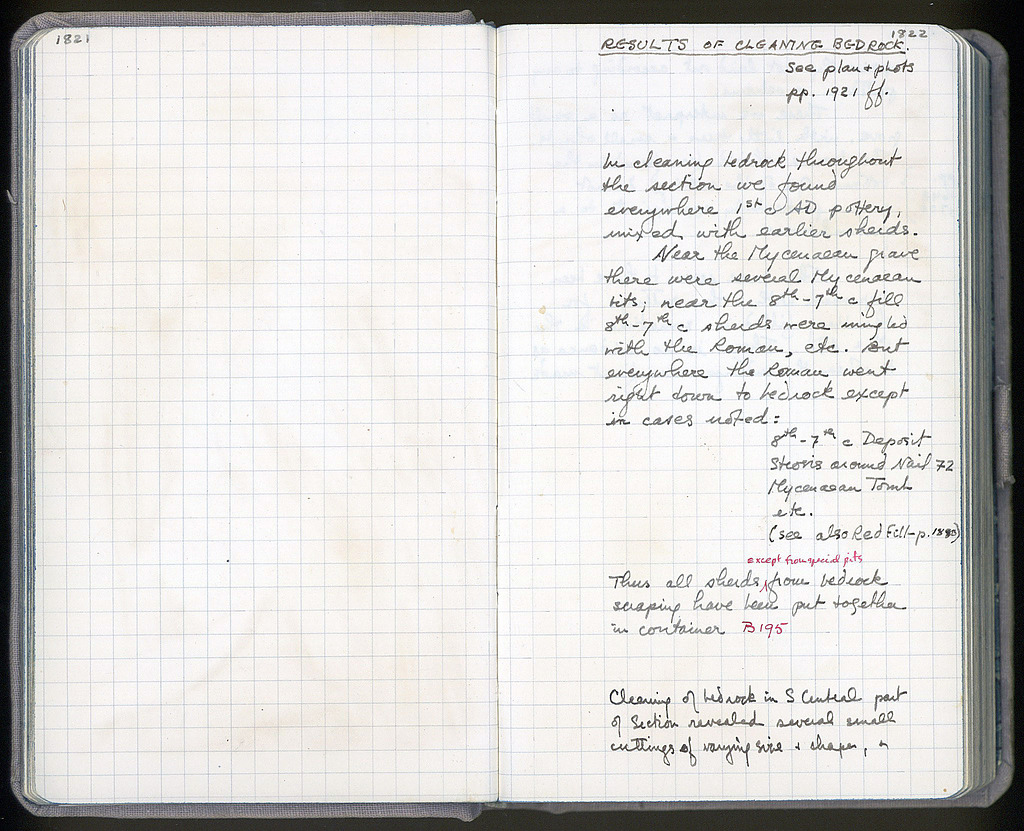 1821
1822
RESULTS OF CLEANING BEDROCK.
See plan + phots
pp. 1921 ff.
In cleaning bedrock throughout
the section we found
everywhere 1st c AD pottery,
mixed with earlier sherds.
Near the Mycenaean grave
there were several Mycenaean
bits; near the 8th-7th c fill
8th-7th c sherds were mingled
with the Roman, etc. But
everywhere the Roman went
right down to bedrock except
in cases noted:
8th-7th c Deposit
Strosis around Nail 72
Mycenaean Tomb
etc.
(see also Red Fill-p.
except from special pits
Thus all sherds from bedrock
scraping have been put together
in container B195
Cleaning of bedrock in S Central part
of Section revealed several small
cuttings of varying size + shapes,